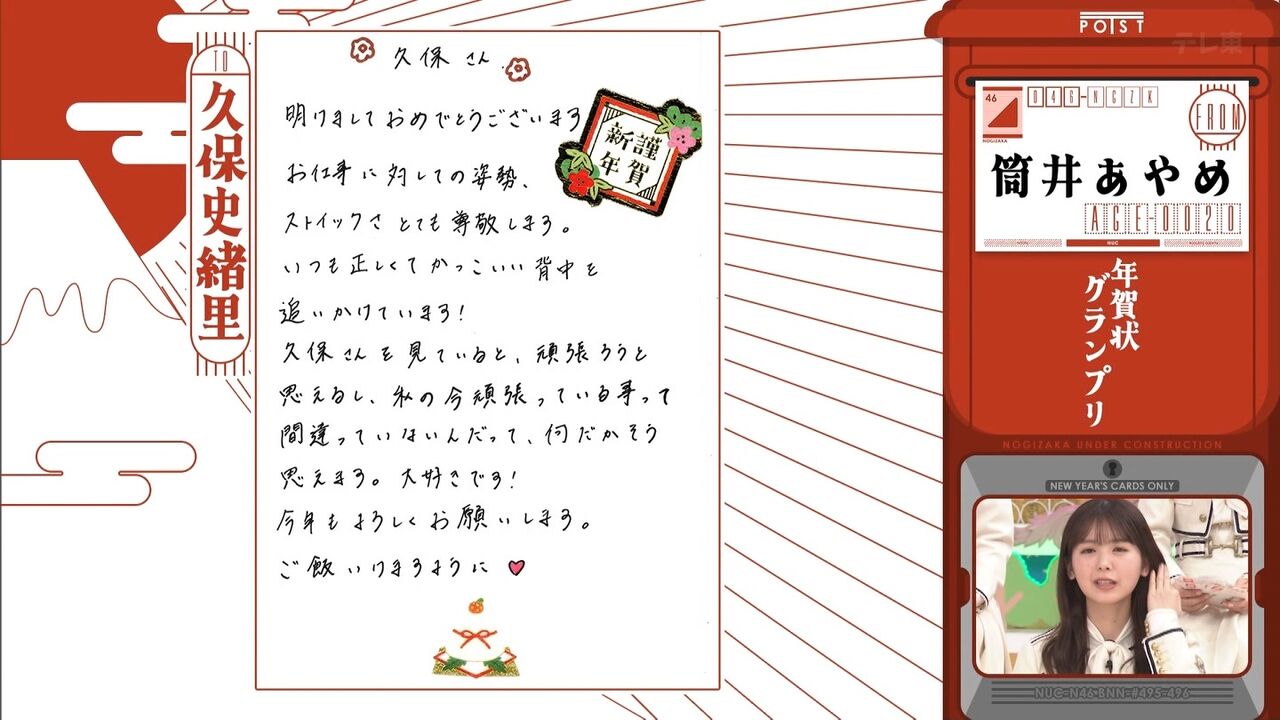 TO
久保史緒里
久保さん
明けましておめでとうございます
お仕事に対しての姿勢、
ストイックさとても尊敬します。
いつも正しくてかっこいい背中を
追いかけています!
久保さんを見ていると、頑張ろうと
思えるし、私の今頑張っている事って
間違っていないんだって、何だかそう
思えます。大好きです!
今年もよろしくお願いします。
ご飯いけますように
謹賀
新年
POST
テレ東
46
NOGIZAKA
046-NGZK
FROM
筒井あやめ
AGE-0020
NUC
年賀状
グランプリ
NOGIZAKA UNDER CONSTRUCTION
NEW YEAR'S CARDS ONLY
NUC-N46-BNN-#495-496